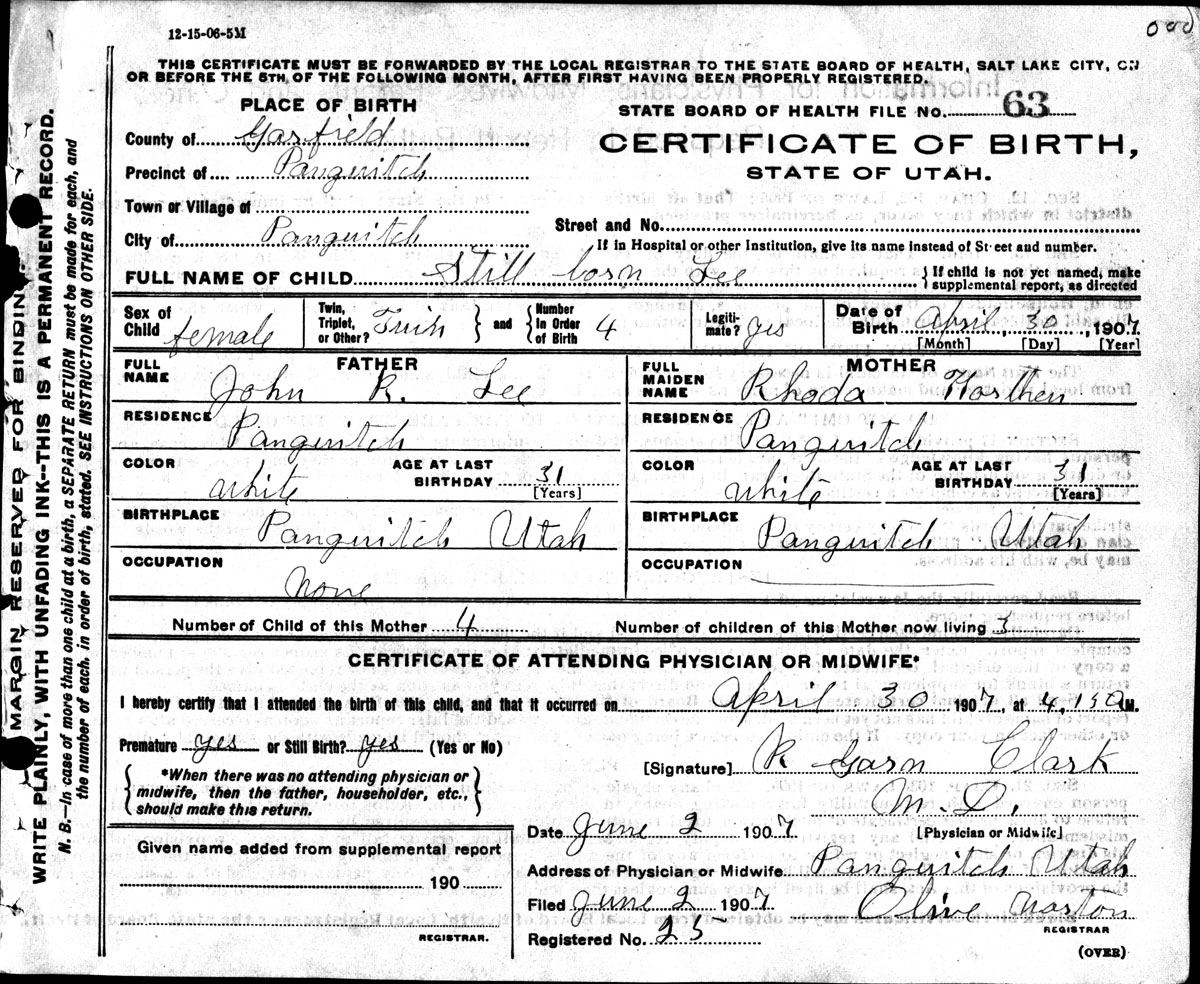 000
12-15-06-5M
THIS CERTIFICATE MUST BE FORWARDED BY THE LOCAL REGISTRAR TO THE STATE BOARD OF HEALTH, SALT LAKE CITY, ON
OR BEFORE THE 5TH OF THE FOLLOWING MONTH, AFTER FIRST HAVING BEEN PROPERLY REGISTERED.
PLACE OF BIRTH
STATE BOARD OF HEALTH FILE NO. 63
County of Garfield
CERTIFICATE OF BIRTH,
Precinct of Panguitch
STATE OF UTAH.
Town or Village of
Street and No.
City of Panguitch
If in Hospital or other Institution, give its name instead of Street and number.
FULL NAME OF CHILD Still born Lee
If child is not yet named, make
supplemental report, as directed
Sex of Child female
Twin, Triplet, or Other? Twin and Number In Order of Birth 4
Legitimate? yes
Date of Birth April 30, 1907
[Month] [Day] [Year]
FATHER
FULL NAME John R. Lee
RESIDENCE Panguitch
COLOR white AGE AT LAST BIRTHDAY 31
[Years]
BIRTHPLACE Panguitch Utah
OCCUPATION None
MOTHER
FULL MAIDEN NAME Rhoda Worthen
RESIDENCE Panguitch
COLOR white AGE AT LAST BIRTHDAY 31
[Years]
BIRTHPLACE Panguitch Utah
OCCUPATION
Number of Child of this Mother 4 Number of children of this Mother now living 3
CERTIFICATE OF ATTENDING PHYSICIAN OR MIDWIFE*
I hereby certify that I attended the birth of this child, and that it occurred on April 30 1907, at 4,150 M.
Premature yes or Still Birth? yes (Yes or No)
*When there was no attending physician or
midwife, then the father, householder, etc.,
should make this return.
[Signature] R Garn Clark
M. D.
Date June 2 1907 [Physician or Midwife]
Address of Physician or Midwife Panguitch Utah
Filed June 2 1907 Olive Norton
REGISTRAR
Registered No. 25
(OVER)
Given name added from supplemental report
190
REGISTRAR.
MARGIN RESERVED FOR BINDING.
WRITE PLAINLY, WITH UNFADING INK--THIS IS A PERMANENT RECORD.
N. B.—In case of more than one child at a birth, a SEPARATE RETURN must be made for each, and
the number of each, in order of birth, stated. SEE INSTRUCTIONS ON OTHER SIDE.